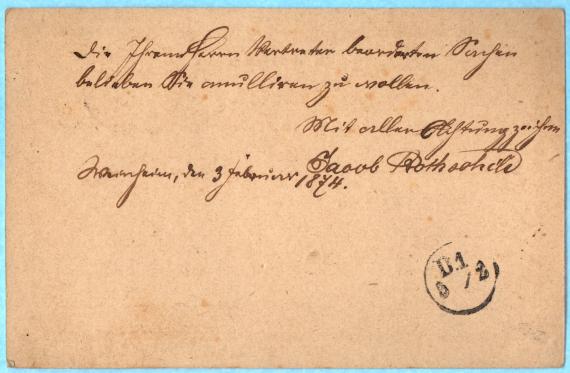 Die Ihrem Herrn Vertreter beorderten Sachen
belieben Sie anulliren zu wollen.
Mit aller Achtung zeichne
Jacob Rothschild
Weinheim, den 3 Februar 1874.
D.1
/ 2